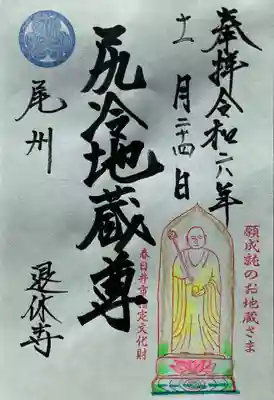 奉拝令和六年
十一月二十四日
願成就のお地蔵さま
春日井市指定文化財
尻冷地蔵尊
尾州
退休寺